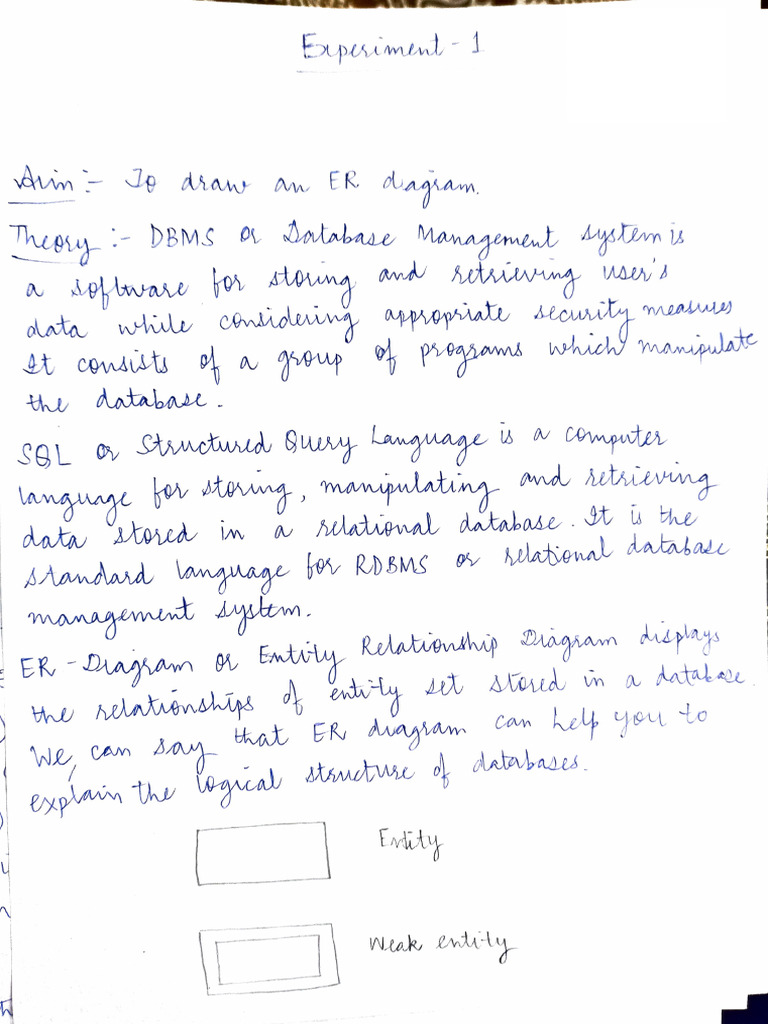 Experiment - 1
Aim :- To draw an ER diagram.
Theory :- DBMS or Database Management System is
a software for storing and retrieving user's
data while considering appropriate security measures
It consists of a group of programs which manipulate
the database.
SQL or Structured Query Language is a computer
language for storing, manipulating and retrieving
data stored in a relational database. It is the
standard language for RDBMS or relational database
management system.
ER - Diagram or Entity Relationship Diagram displays
the relationships of entity set stored in a database.
We, can say that ER diagram can help you to
explain the logical structure of databases.
Entity
Weak entity